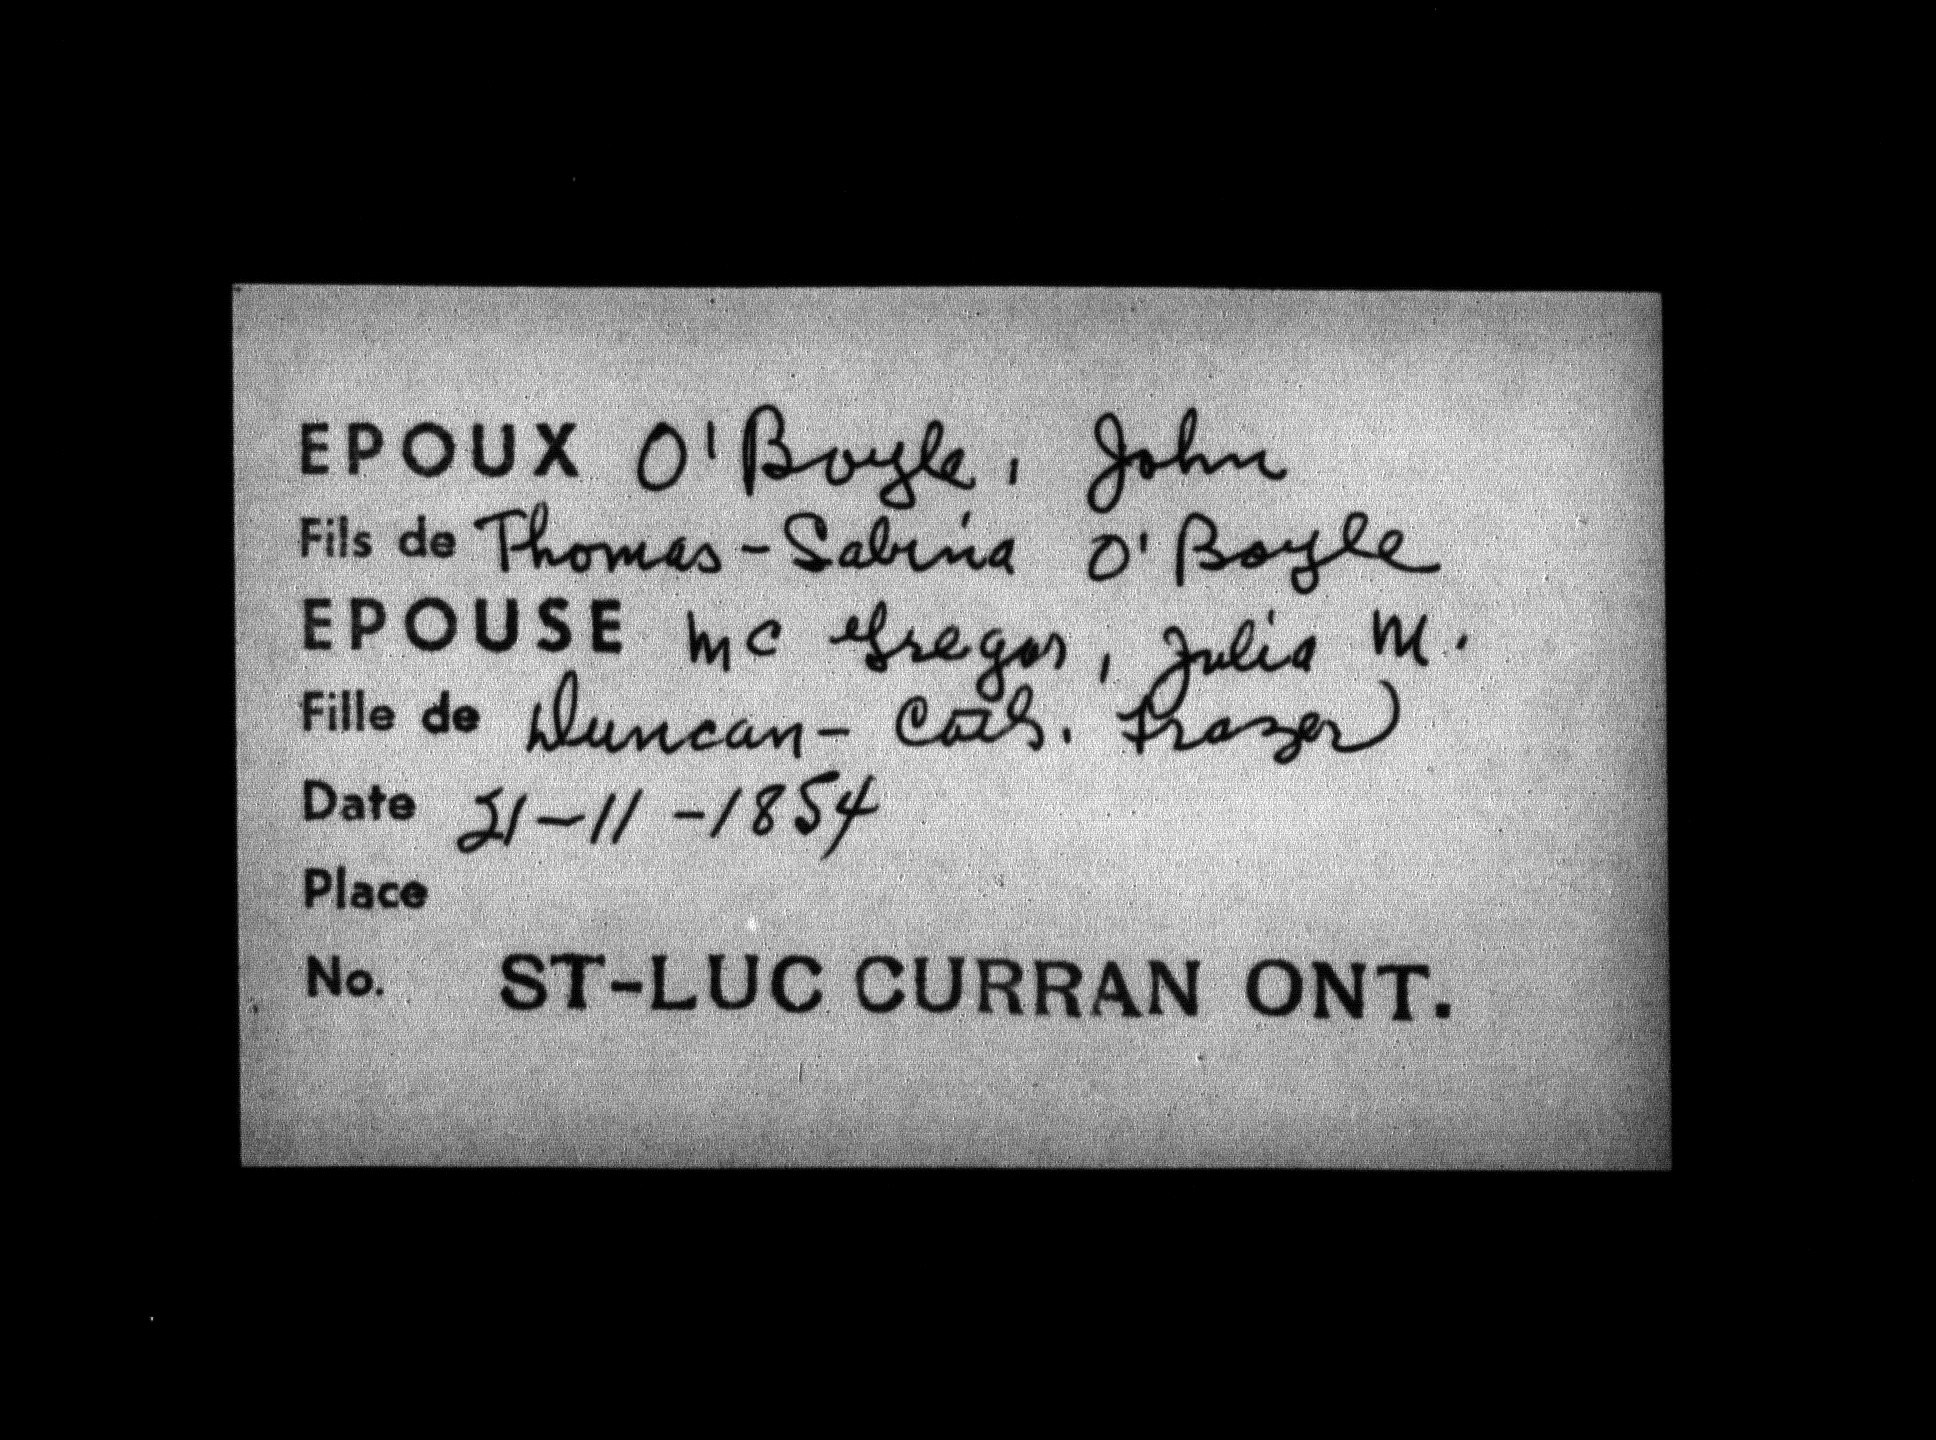 EPOUX O'Boyle, John
Fils de Thomas - Sabina O'Boyle
EPOUSE Mc Gregor, Julia M.
Fille de Duncan - Cath. Frazer
Date 21-11-1854
Place
No. ST-LUC CURRAN ONT.